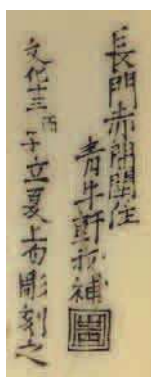 長門赤間關住
青牛軒補
文化十三丙子立夏上旬彫刻之